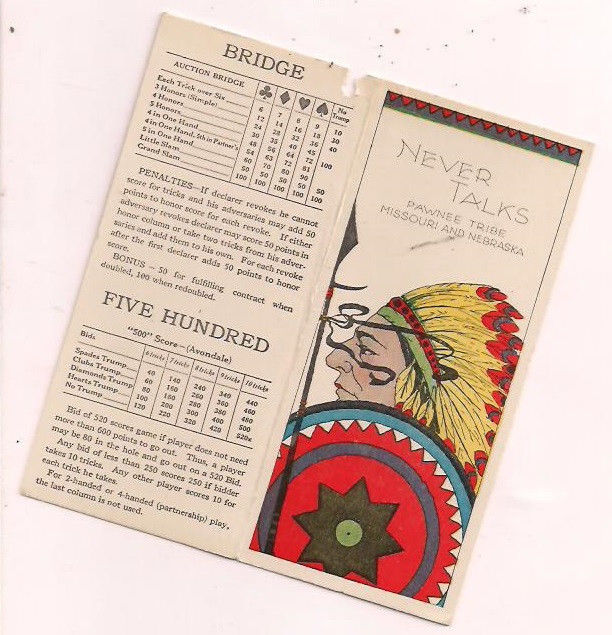 BRIDGE
AUCTION BRIDGE ♣ ♦ ♥ ♠ No Trump
Each Trick over Six 6 7 8 9 10
3 Honors (Simple) 12 14 16 18 30
4 Honors 24 28 32 36 40
5 Honors 30 35 40 45
4 in One Hand 48 56 64 72 100
4 in One Hand, 5th in Partner's 54 63 72 81
5 in One Hand 60 70 80 90
Little Slam 50 50 50 50 50
Grand Slam 100 100 100 100 100
PENALTIES—If declarer revokes he cannot
score for tricks and his adversaries may add 50
points to honor score for each revoke. If either
adversary revokes declarer may score 50 points in
honor column or take two tricks from his adver-
saries and add them to his own. For each revoke
after the first declarer adds 50 points to honor
score.
BONUS—50 for fulfilling contract when
doubled, 100 when redoubled.
FIVE HUNDRED
"500" Score—(Avondale)
Bids 6 tricks 7 tricks 8 tricks 9 tricks 10 tricks
Spades Trump 40 140 240 340 440
Clubs Trump 60 160 260 360 460
Diamonds Trump 80 180 280 380 480
Hearts Trump 100 200 300 400 500
No Trump 120 220 320 420 520x
Bid of 520 scores game if player does not need
more than 600 points to go out. Thus, a player
may be 80 in the hole and go out on a 520 Bid.
Any bid of less than 250 scores 250 if bidder
takes 10 tricks. Any other player scores 10 for
each trick he takes.
For 2-handed or 4-handed (partnership) play,
the last column is not used.
NEVER
TALKS
PAWNEE TRIBE
MISSOURI AND NEBRASKA